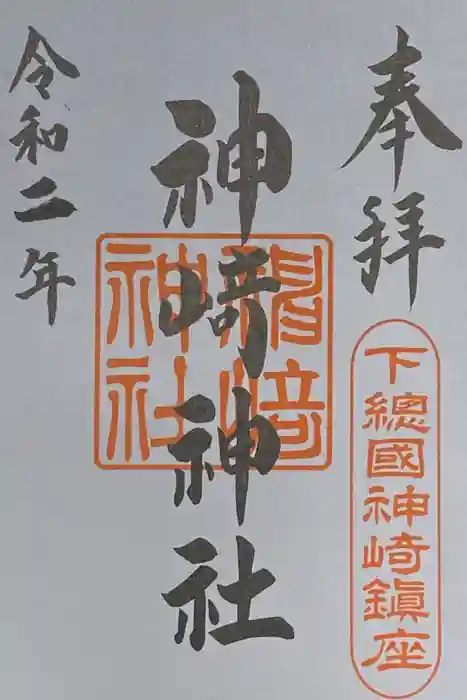 奉拝
下總國神崎鎮座
神崎神社
稲崎神社
令和二年